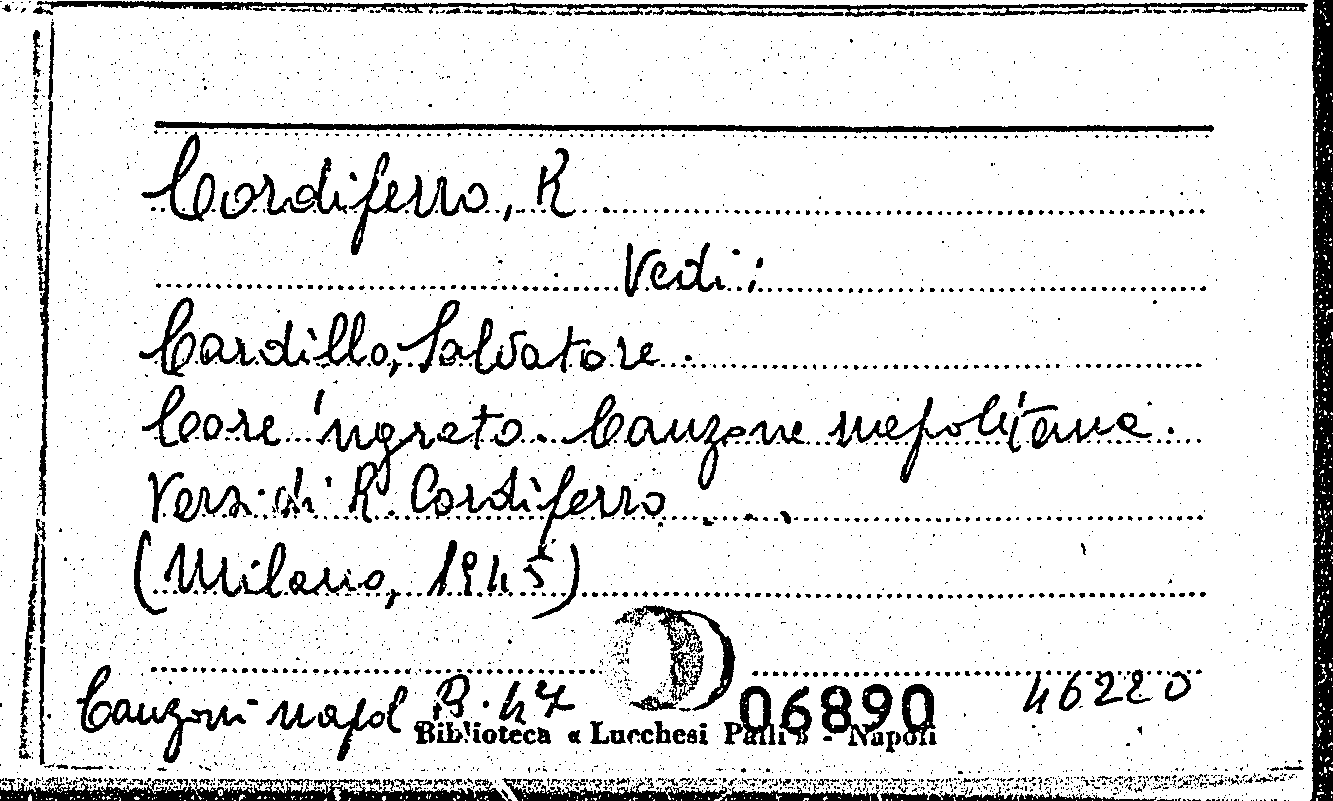 Cordiferro, R
Vedi:
Cardillo, Salvatore.
Core 'ngrato. Canzone napolitana.
Versi di R. Cordiferro ...
(Milano, 1945)
Canzoni napol B. 47
06890
46220
Biblioteca « Lucchesi Palli » - Napoli